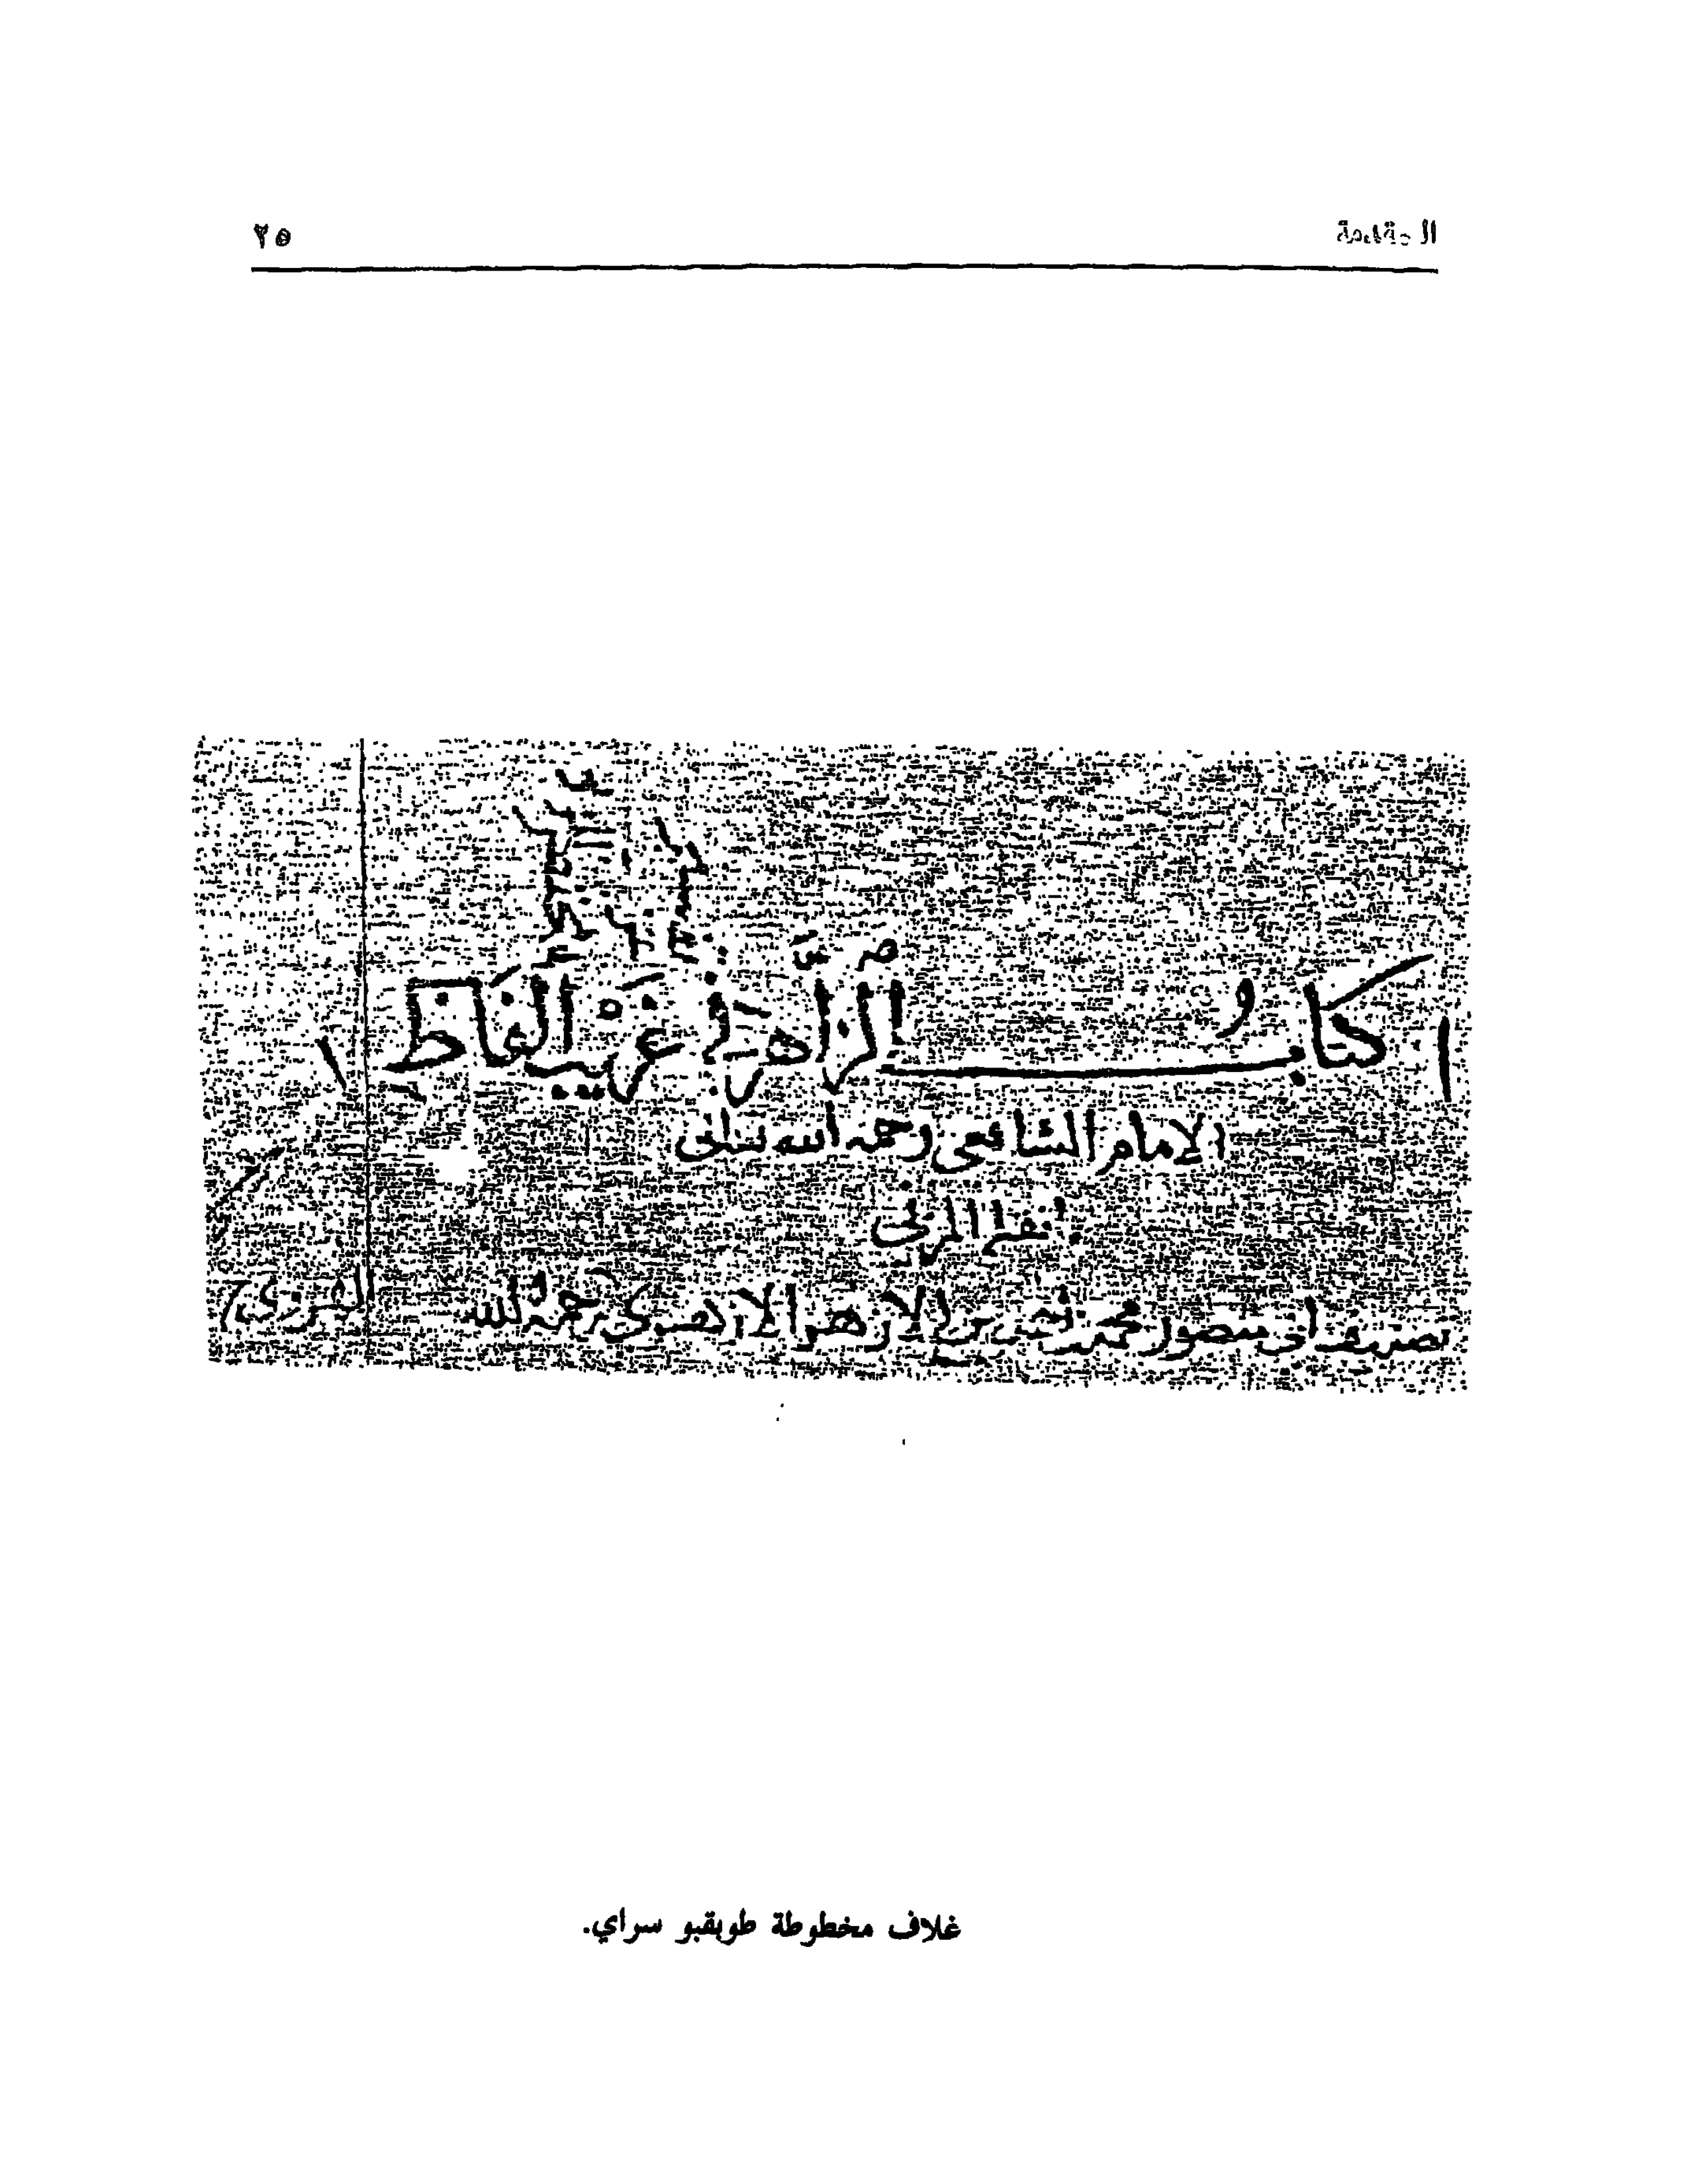 المقدمة ٢٥
كتاب الزاهر في غريب الفاظ
الامام الشافعي رحمه الله تعالى
نقل المزني
تصنيف ابي منصور محمد بن احمد بن الازهر الازهري رحمه الله
غلاف مخطوطة طوبقبو سراي.